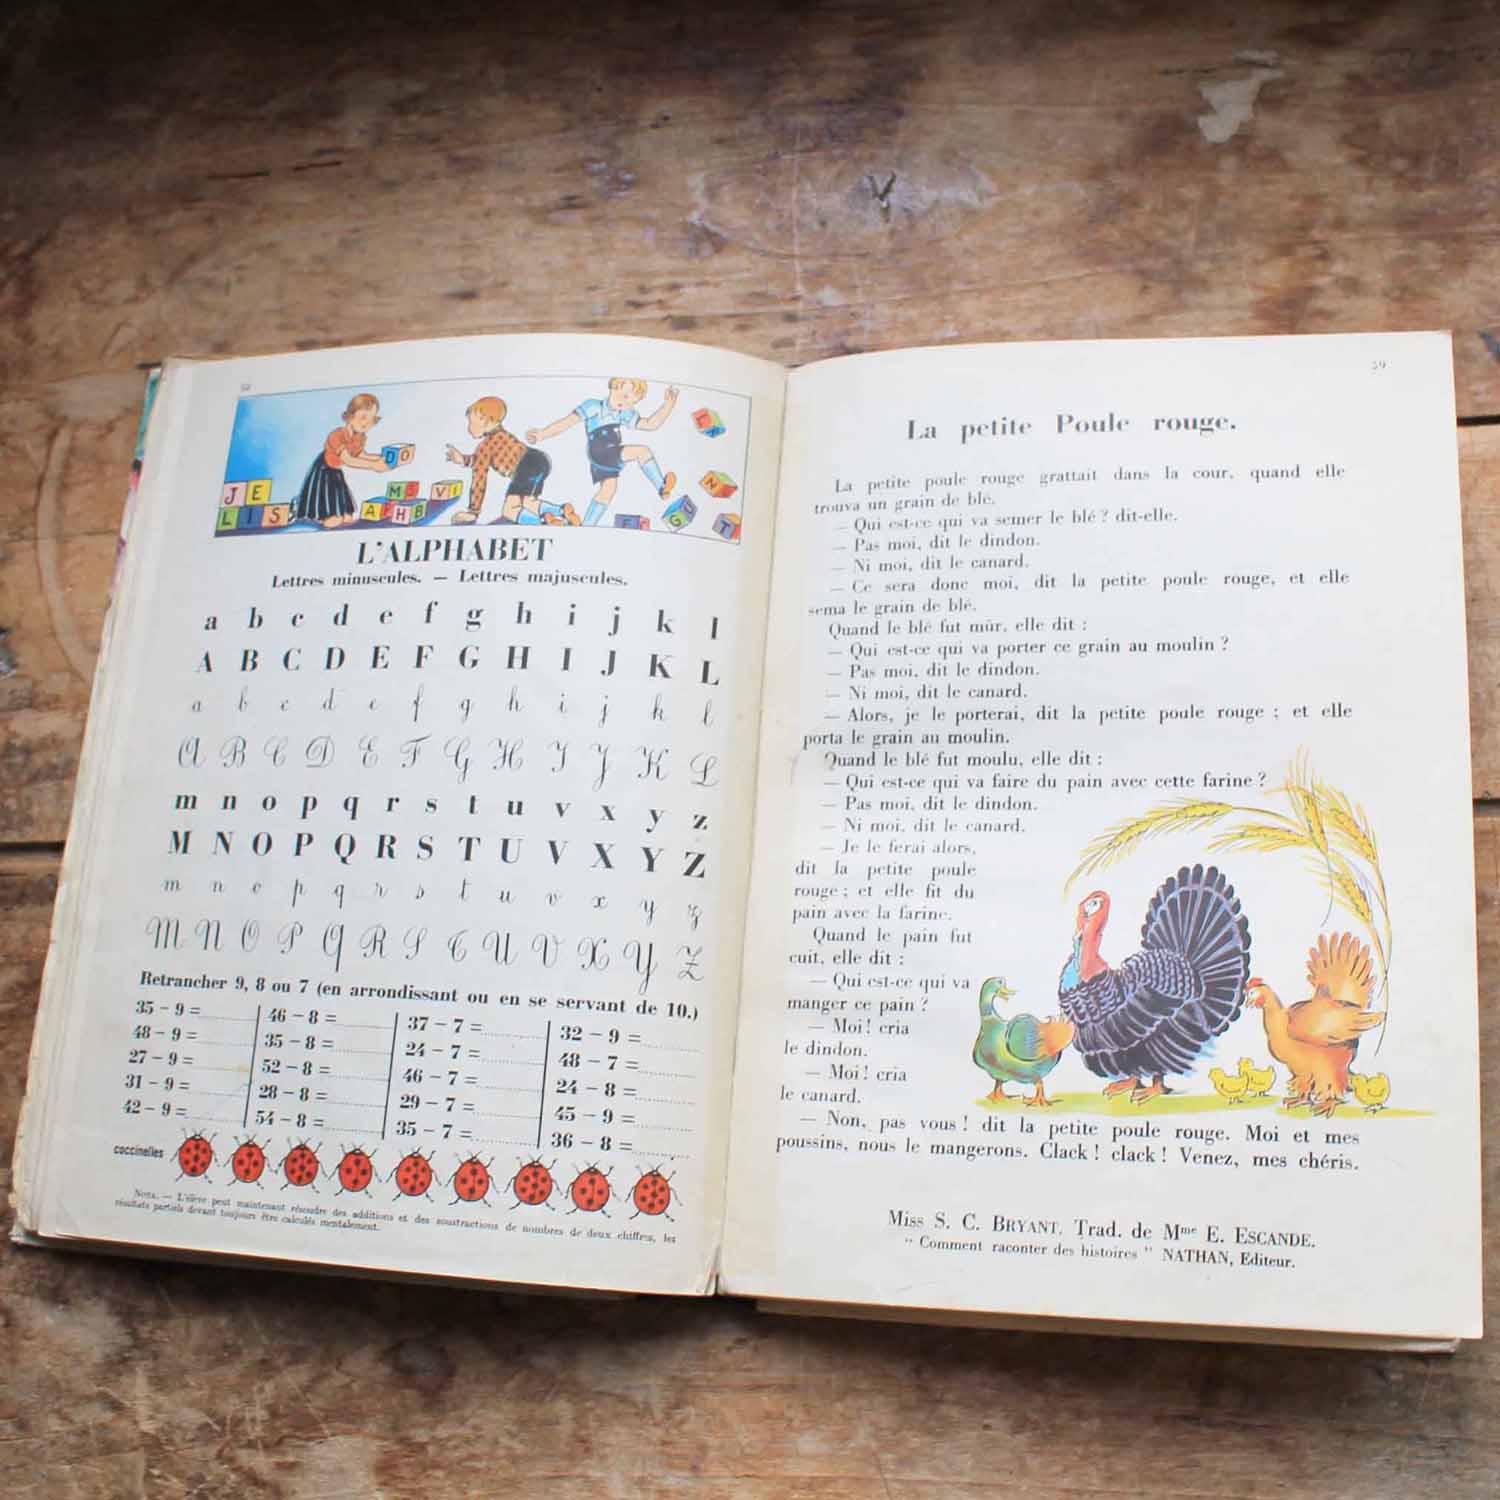 JE
LIS
DO
MS VI
APHB
L'ALPHABET
Lettres minuscules. — Lettres majuscules.
a b c d e f g h i j k l
A B C D E F G H I J K L
a b c d e f g h i j k l
A B C D E F G H I J K L
m n o p q r s t u v x y z
M N O P Q R S T U V X Y Z
m n o p q r s t u v x y z
M N O P Q R S T U V X Y Z
Retrancher 9, 8 ou 7 (en arrondissant ou en se servant de 10.)
35 - 9 =
48 - 9 =
27 - 9 =
31 - 9 =
42 - 9 =
46 - 8 =
35 - 8 =
52 - 8 =
28 - 8 =
54 - 8 =
37 - 7 =
24 - 7 =
46 - 7 =
29 - 7 =
35 - 7 =
32 - 9 =
48 - 7 =
24 - 8 =
45 - 9 =
36 - 8 =
coccinelles
NOTA. — L'élève peut maintenant résoudre des additions et des soustractions de nombres de deux chiffres, les
résultats partiels devant toujours être calculés mentalement.
59
La petite Poule rouge.
La petite poule rouge grattait dans la cour, quand elle
trouva un grain de blé.
— Qui est-ce qui va semer le blé ? dit-elle.
— Pas moi, dit le dindon.
— Ni moi, dit le canard.
— Ce sera donc moi, dit la petite poule rouge, et elle
sema le grain de blé.
Quand le blé fut mûr, elle dit :
— Qui est-ce qui va porter ce grain au moulin ?
— Pas moi, dit le dindon.
— Ni moi, dit le canard.
— Alors, je le porterai, dit la petite poule rouge ; et elle
porta le grain au moulin.
Quand le blé fut moulu, elle dit :
— Qui est-ce qui va faire du pain avec cette farine ?
— Pas moi, dit le dindon.
— Ni moi, dit le canard.
— Je le ferai alors,
dit la petite poule
rouge ; et elle fit du
pain avec la farine.
Quand le pain fut
cuit, elle dit :
— Qui est-ce qui va
manger ce pain ?
— Moi ! cria
le dindon.
— Moi ! cria
le canard.
— Non, pas vous ! dit la petite poule rouge. Moi et mes
poussins, nous le mangerons. Clack ! clack ! Venez, mes chéris.
Miss S. C. BRYANT. Trad. de Mme E. ESCANDE.
" Comment raconter des histoires " NATHAN, Editeur.